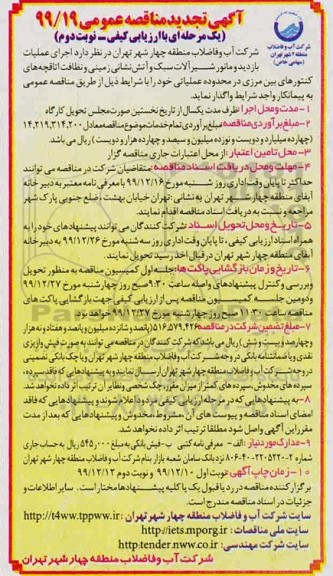 آگهی تجدید مناقصه عمومی ۹۹/۱۹
(یک مرحله ای با ارزیابی کیفی - نوبت دوم)
شرکت آب و فاضلاب
منطقه ۴ شهر تهران
(سهامی خاص)
شرکت آب و فاضلاب منطقه چهار شهر تهران در نظر دارد اجرای عملیات
بازدید و مانور شیرآلات سبک و آتش نشانی زمینی و نظافت اتاقچه های
کنتورهای بین مرزی در محدوده عملیاتی خود را با شرایط ذیل از طریق مناقصه عمومی
به پیمانکار واجد شرایط واگذار نماید.
۱- مدت و محل اجرا: ظرف مدت یکسال از تاریخ نخستین صورتمجلس تحویل کارگاه
۲- مبلغ برآوردی مناقصه: مبلغ برآوردی تمام خدمات موضوع مناقصه معادل ۱۴,۲۱۹,۳۱۴,۲۰۰
(چهارده میلیارد و دویست و نوزده میلیون و سیصد و چهارده هزار و دویست) ریال می باشد.
۳- محل تامین اعتبار: از محل اعتبارات جاری مناقصه گزار
۴- مهلت و محل دریافت اسناد مناقصه: متقاضیان شرکت در مناقصه می توانند
حداکثر تا پایان وقت اداری روز شنبه مورخ ۹۹/۱۲/۱۶ با معرفی نامه معتبر به دبیرخانه
آبفای منطقه چهار شهر تهران به نشانی: تهران خیابان بهشت، ضلع جنوبی پارک شهر
مراجعه و نسبت به دریافت اسناد مناقصه اقدام نمایند.
۵- تاریخ و محل تحویل اسناد: شرکت کنندگان می توانند پیشنهادهای خود را به
همراه اسناد ارزیابی کیفی، تا پایان وقت اداری روز سه شنبه مورخ ۹۹/۱۲/۲۶ به دبیرخانه
آبفای منطقه چهار شهر تهران در قبال اخذ رسید تحویل نمایند.
۶- تاریخ و زمان بازگشایی پاکت ها: جلسه اول کمیسیون مناقصه به منظور تحویل
و بررسی و کنترل پیشنهادهای واصله ساعت ۹:۳۰ صبح روز چهارشنبه مورخ ۹۹/۱۲/۲۷
و دومین جلسه کمیسیون مناقصه پس از ارزیابی کیفی جهت بازگشایی پاکت های
مناقصه ساعت صبح روز چهارشنبه مورخ ۹۹/۱۲/۲۷ خواهد بود.
۷- مبلغ تضمین شرکت در مناقصه: ۵۱۶,۵۷۹,۴۲۶ (پانصد و شانزده میلیون و پانصد و هفتاد و نه هزار
و چهارصد و بیست و شش) ریال می باشد که شرکت کنندگان در مناقصه می توانند به صورت فیش واریزی
نقدی و یا ضمانتنامه بانکی در وجه شرکت آب و فاضلاب منطقه چهار شهر تهران و یا چک بانکی تضمینی
در وجه شرکت آب و فاضلاب منطقه چهار شهر تهران ارسال نمایند و به پیشنهادهایی که فاقد سپرده،
سپرده های مخدوش، سپرده های کمتر از میزان مقرر، چک شخصی و نظایر آن ترتیب اثر داده نخواهد شد.
۸- به پیشنهادهایی که در مرحله ارزیابی کیفی مردود اعلام شوند و پیشنهادهایی که فاقد
امضای اسناد مناقصه و پیوست های آن، مشروط، مخدوش و پیشنهادهایی که بعد از مدت
مقرر این آگهی واصل شود مطلقا ترتیب اثر داده نخواهد شد.
۹- مدارک مورد نیاز: الف - معرفی نامه کتبی ب - فیش بانکی به مبلغ ۵۴۵,۰۰۰ ریال به حساب جاری
شماره نزد بانک سامان شعبه بازار بنام شرکت آب و فاضلاب منطقه چهار شهر تهران
۱۰- زمان چاپ آگهی: نوبت اول ۹۹/۱۲/۱۰ و نوبت دوم ۹۹/۱۲/۱۳
برگزار کننده مناقصه در رد یا قبول یک یا کلیه پیشنهادها مختار است. سایر اطلاعات و
جزئیات در اسناد مناقصه مندرج است.
سایت شرکت آب و فاضلاب منطقه چهار شهر تهران: http://t4ww.tppww.ir
سایت ملی مناقصات: http://iets.mporg.ir
سایت شرکت مهندسی: http:tender.nww.co.ir
شرکت آب و فاضلاب منطقه چهار شهر تهران